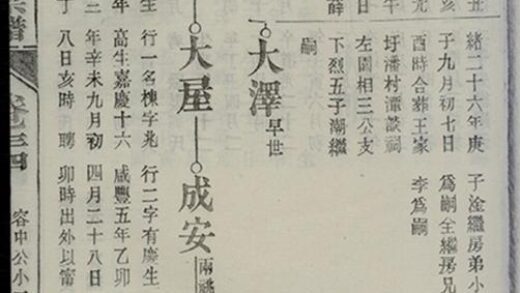 丑
緒二十六年庚
子淦繼房弟小
亥
子九月初七日
爲嗣全繼房兄
酉時合葬王家
李爲嗣
圩潘村潭談祠
左園相三公支
薛
下烈五子潮繼
嗣
大澤 早世
大屋 成安 兩祧
生
行一名棟字兆
行二字有慶生
年
高生嘉慶十六
咸豐五年乙卯
年辛未九月初
四月二十八日
丁
八日亥時聘
卯時出外以甯
譜
容中公小